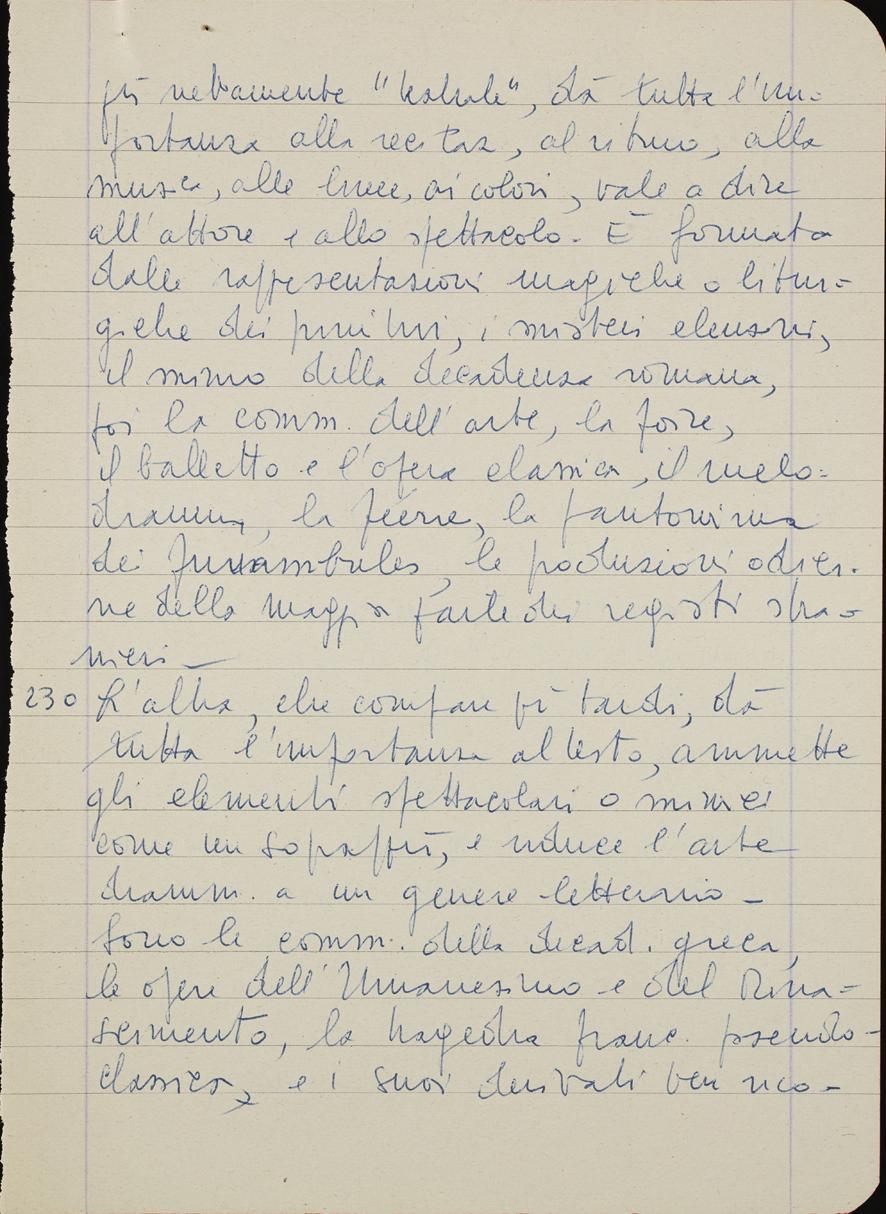 più nettamente "teatrale", dà tutta l'im-
portanza alla recitaz, al ritmo, alla
musica, alle luci, ai colori, vale a dire
all'attore e allo spettacolo. È formata
dalle rappresentazioni magiche o litur-
giche dei primitivi, i misteri eleusini,
il mimo della decadenza romana,
poi la comm. dell'arte, la foire,
il balletto e l'opera classica, il melo-
dramma, la féerie, la pantomima
dei funambules, le produzioni odier-
ne della maggior parte dei registi stra-
nieri -
230 L'altra, che compare più tardi, dà
tutta l'importanza al testo, ammette
gli elementi spettacolari o mimici
come un soprappiù, e riduce l'arte
dramm. a un genere letterario -
Sono le comm. della decad. greca,
le opere dell'Umanesimo e del Rina-
scimento, la tragedia franc. pseudo-
classica, e i suoi derivati ben rico-